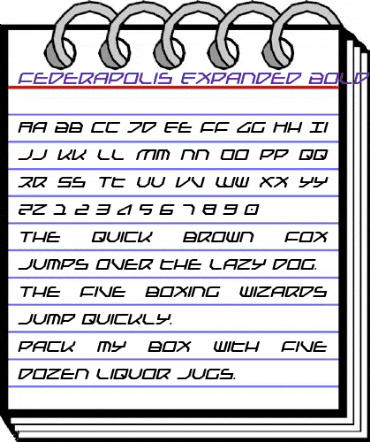 FEDERAPOLIS EXPANDED BOLD
AA BB CC DD EE FF GG HH II
JJ KK LL MM NN OO PP QQ
RR SS TT UU VV WW XX YY
ZZ 1 2 3 4 5 6 7 8 9 0
THE QUICK BROWN FOX
JUMPS OVER THE LAZY DOG.
THE FIVE BOXING WIZARDS
JUMP QUICKLY.
PACK MY BOX WITH FIVE
DOZEN LIQUOR JUGS.